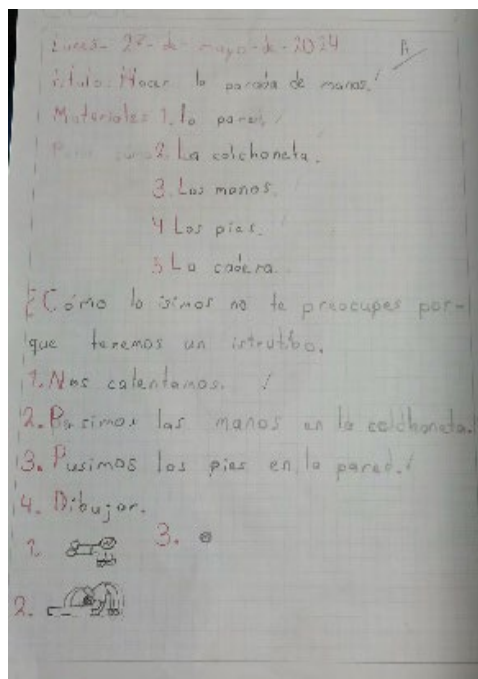 Lunes- 27- de- mayo-de-2024 A
Título: Hacer la parada de manos.
Materiales 1. la pared.
2. La colchoneta.
3. Las manos.
4 Los pies.
5 La cadera.
¿Cómo lo isimos no te preocupes por-
que tenemos un istrutibo.
1. Nos calentamos.
2. Pusimos las manos en la colchoneta.
3. Pusimos los pies en la pared.
4. Dibujar.
1. 3.
2.